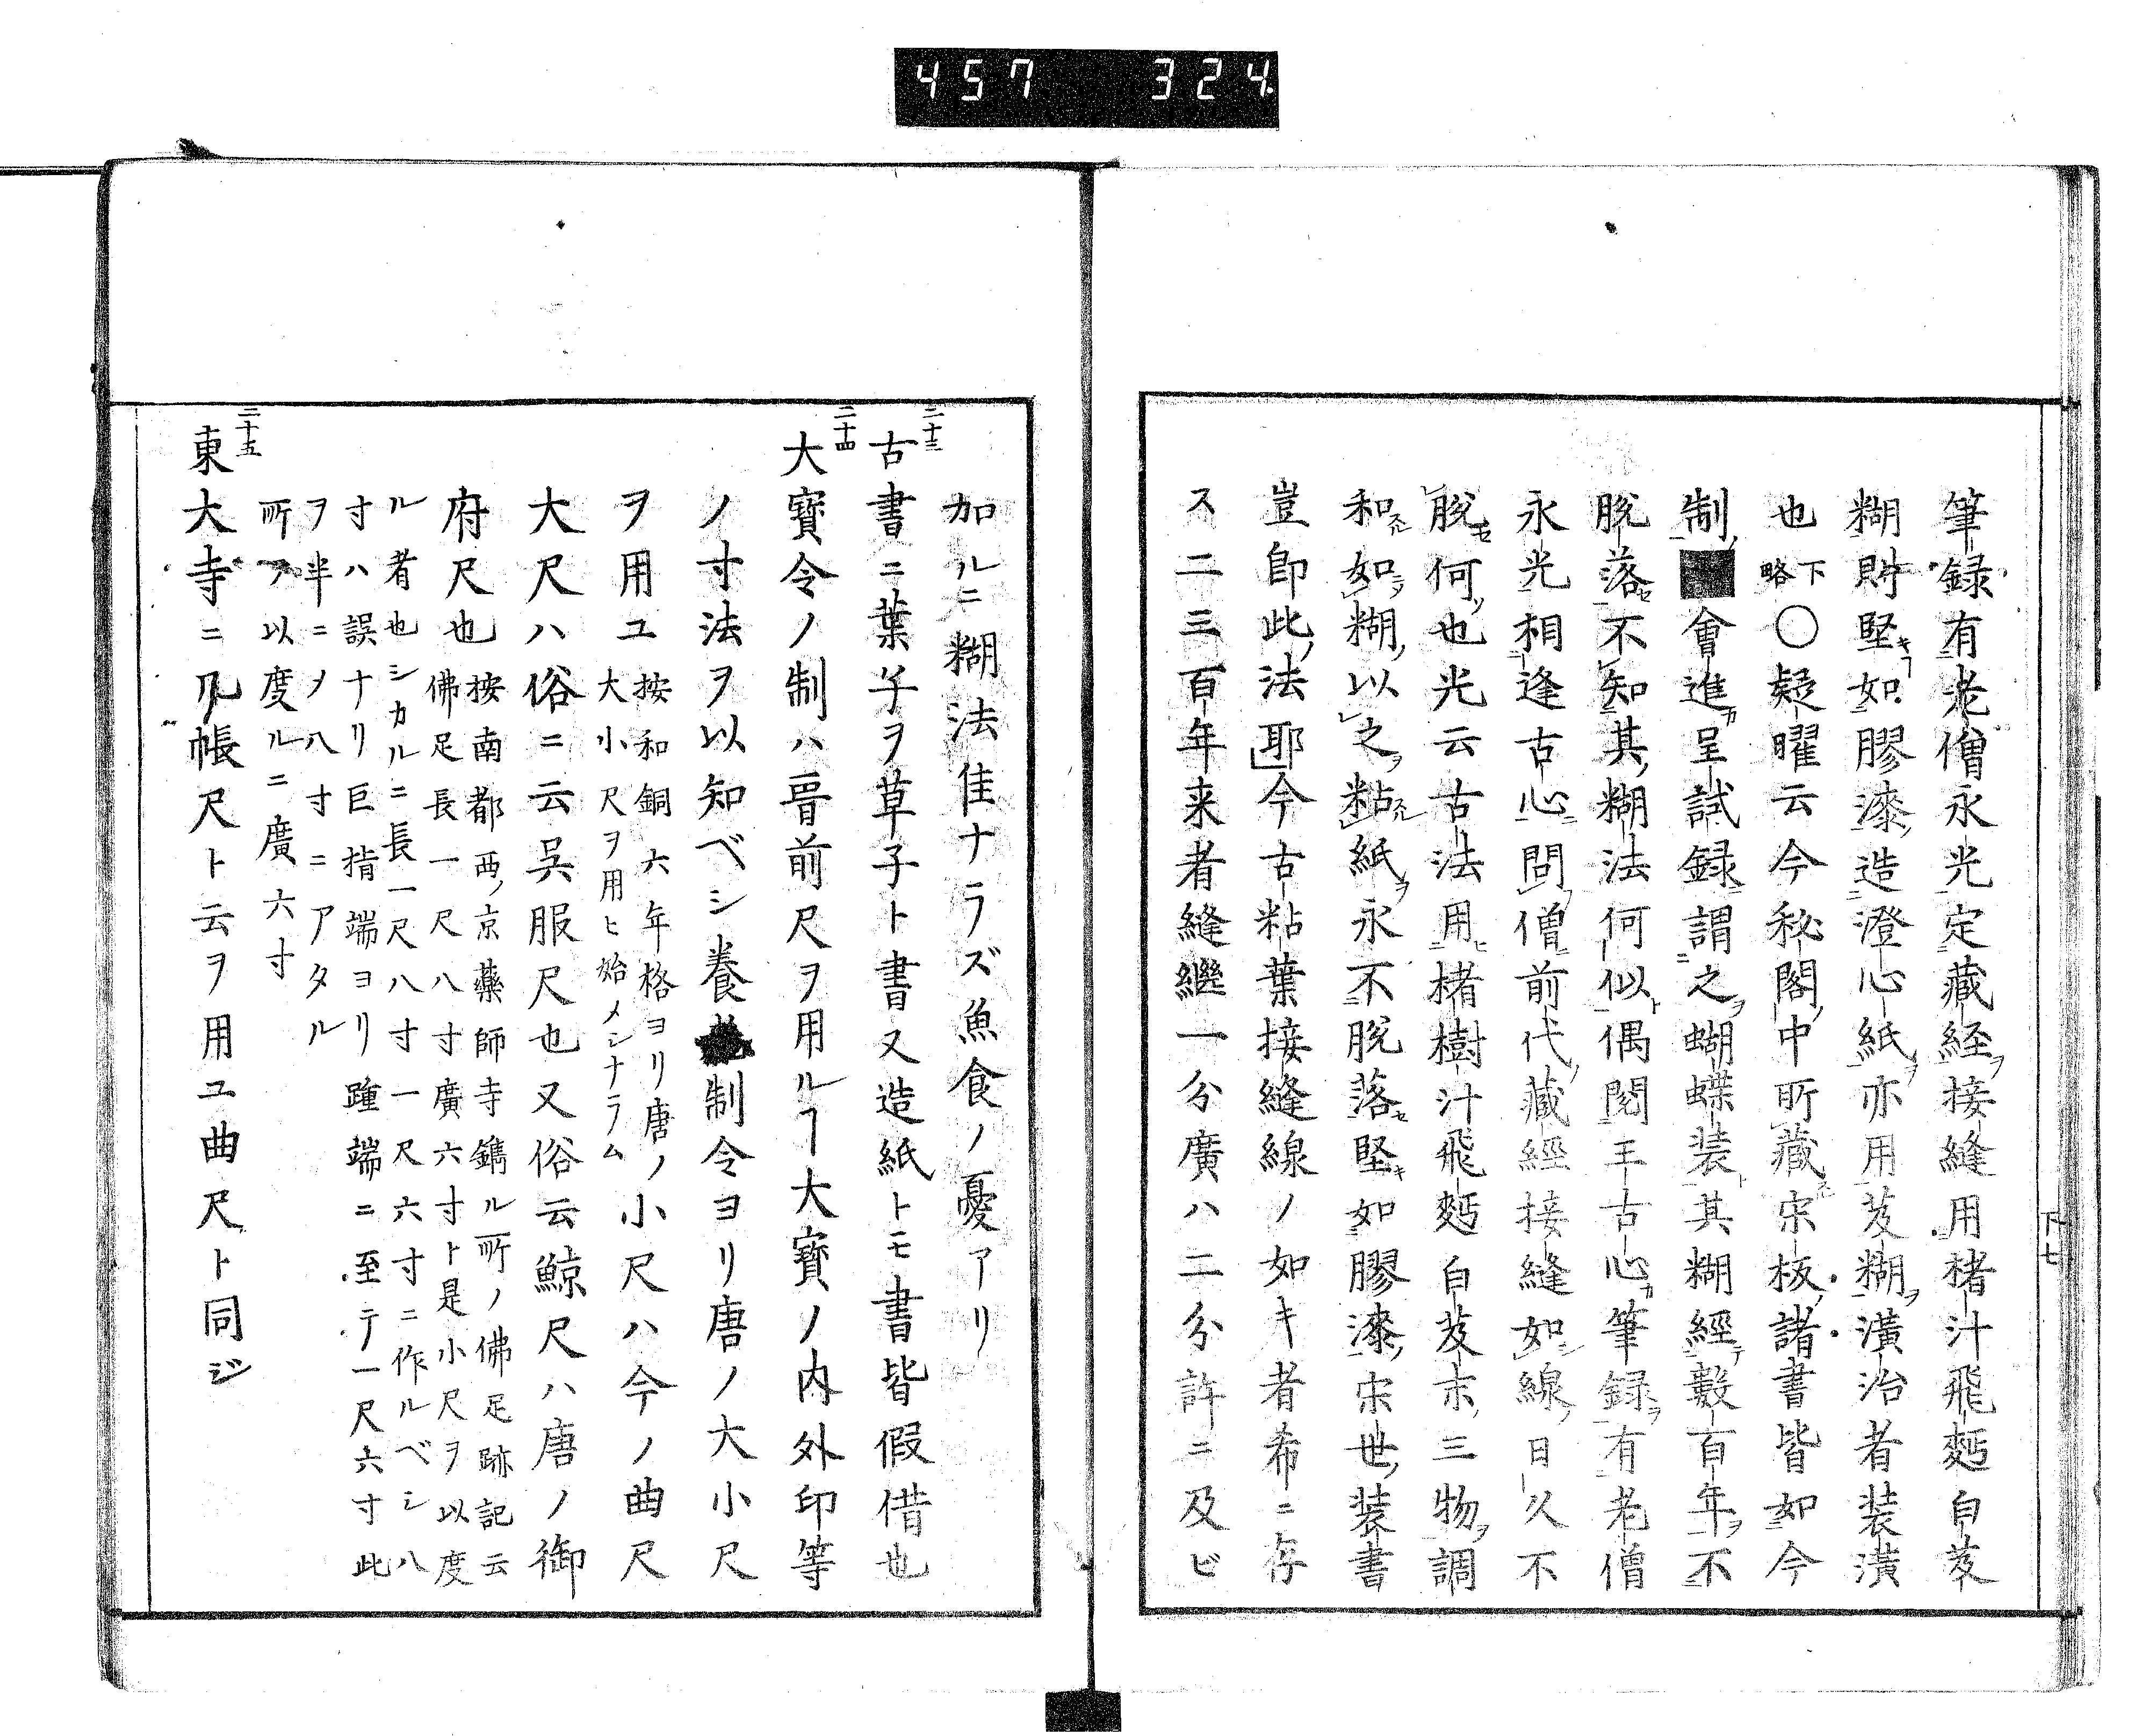 457 324
筆録有老僧永光定藏経接縫用楮汁飛麪白芨
糊則堅如膠漆造澄心紙亦用芨糊潢治者装潢
也下略○疑曜云今秘閣中所藏宋板諸書皆如今
制會進呈試録謂之蝴蝶装其糊經數百年不
脱落不知其糊法何似偶閲王古心筆録有老僧
永光相逢古心問僧前代藏經接縫如線日久不
脱何也光云古法用楮樹汁飛麪白芨末三物調
和如糊以之粘紙永不脱落堅如膠漆宋世装書
豈即此法耶今古粘葉接縫線ノ如キ者希ニ存
ス二三百年来者縫繼一分廣ハ二分許ニ及ビ
下七
加ルニ糊法佳ナラズ魚食ノ憂アリ
二十三
古書ニ葉子ヲ草子ト書又造紙トモ書皆假借也
二十四
大寳令ノ制ハ晋前尺ヲ用ルヿ大寳ノ内外印等
ノ寸法ヲ以知ベシ養制令ヨリ唐ノ大小尺
ヲ用ユ按和銅六年格ヨリ唐ノ大小尺ヲ用ヒ始メシナラム小尺ハ今ノ曲尺
大尺ハ俗ニ云呉服尺也又俗云鯨尺ハ唐ノ御
府尺也按南都西ノ京藥師寺鐫ル所ノ佛足跡記云
佛足長一尺八寸廣六寸ト是小尺ヲ以度
ル者也シカルニ長一尺八寸一尺六寸ニ作ルベシ八
寸ハ誤ナリ巨指端ヨリ踵端ニ至テ一尺六寸此
ヲ半ニシメ八寸ニアタル
所ヲ以度ルニ廣六寸
二十五
東大寺ニ几帳尺ト云ヲ用ユ曲尺ト同ジ